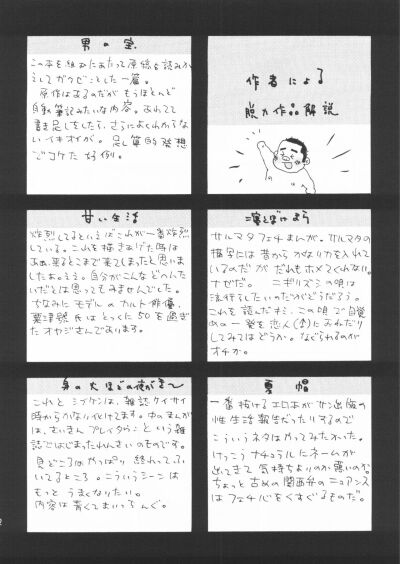 作者による
脱力作品解説
男の宝
この本を組むにあたって原稿を読みかえしてガクゼンとした一篇。
原作はあるのだがもうほとんど
自動筆記みたいな内容。あわてて
書き足しをしたら、さらによくわからな
いイキオイが。足し算的発想
でコケた好例。
サルマタフェチまんが。サルマタの
描写には昔からかなり力を入れて
いるのだが だれもホメてくれない。
ナゼだ。 ニギリズシの唄は
流行らしたいのだがどうだろう。
これを読んだキミ、この唄で自覚
めの一発を恋人(♂)におねだり
してみてはどうか。なぐられるのが
オチか。
甘い生活
炸烈してるといえばこれが一番炸烈
している。これを描きあげた時は
ああ、来るとこまで来てしまったと思いま
したねえ。自分がこんなどへんた
いだとは思ってもみませんでした。
ちなみにモデルのカルト俳優、
粟津號氏はとっくに50を過ぎ
たオヤジさんであります。
一番抜けるエロ本がサン出版の
性生活報告だったりするので
こういうネタはやってみたかった。
けっこうナチュラルにネームが
出てきて気持ちよりのか悪いのか。
ちょっと古めの関西弁のニュアンス
はフェチ心をくすぐるものだ。
これとミゲケンは、雑誌ケイサイ
時からかなり化けてます。中のまんが
は、さいきんプレイタウンという雑
誌ではじまったれんさいのものです。
見どころはやっぱり 終わってふ
いてるところ。こういうシーンは
もっと うまくなりたい。
内容は青くてまいっちんぐ。
2